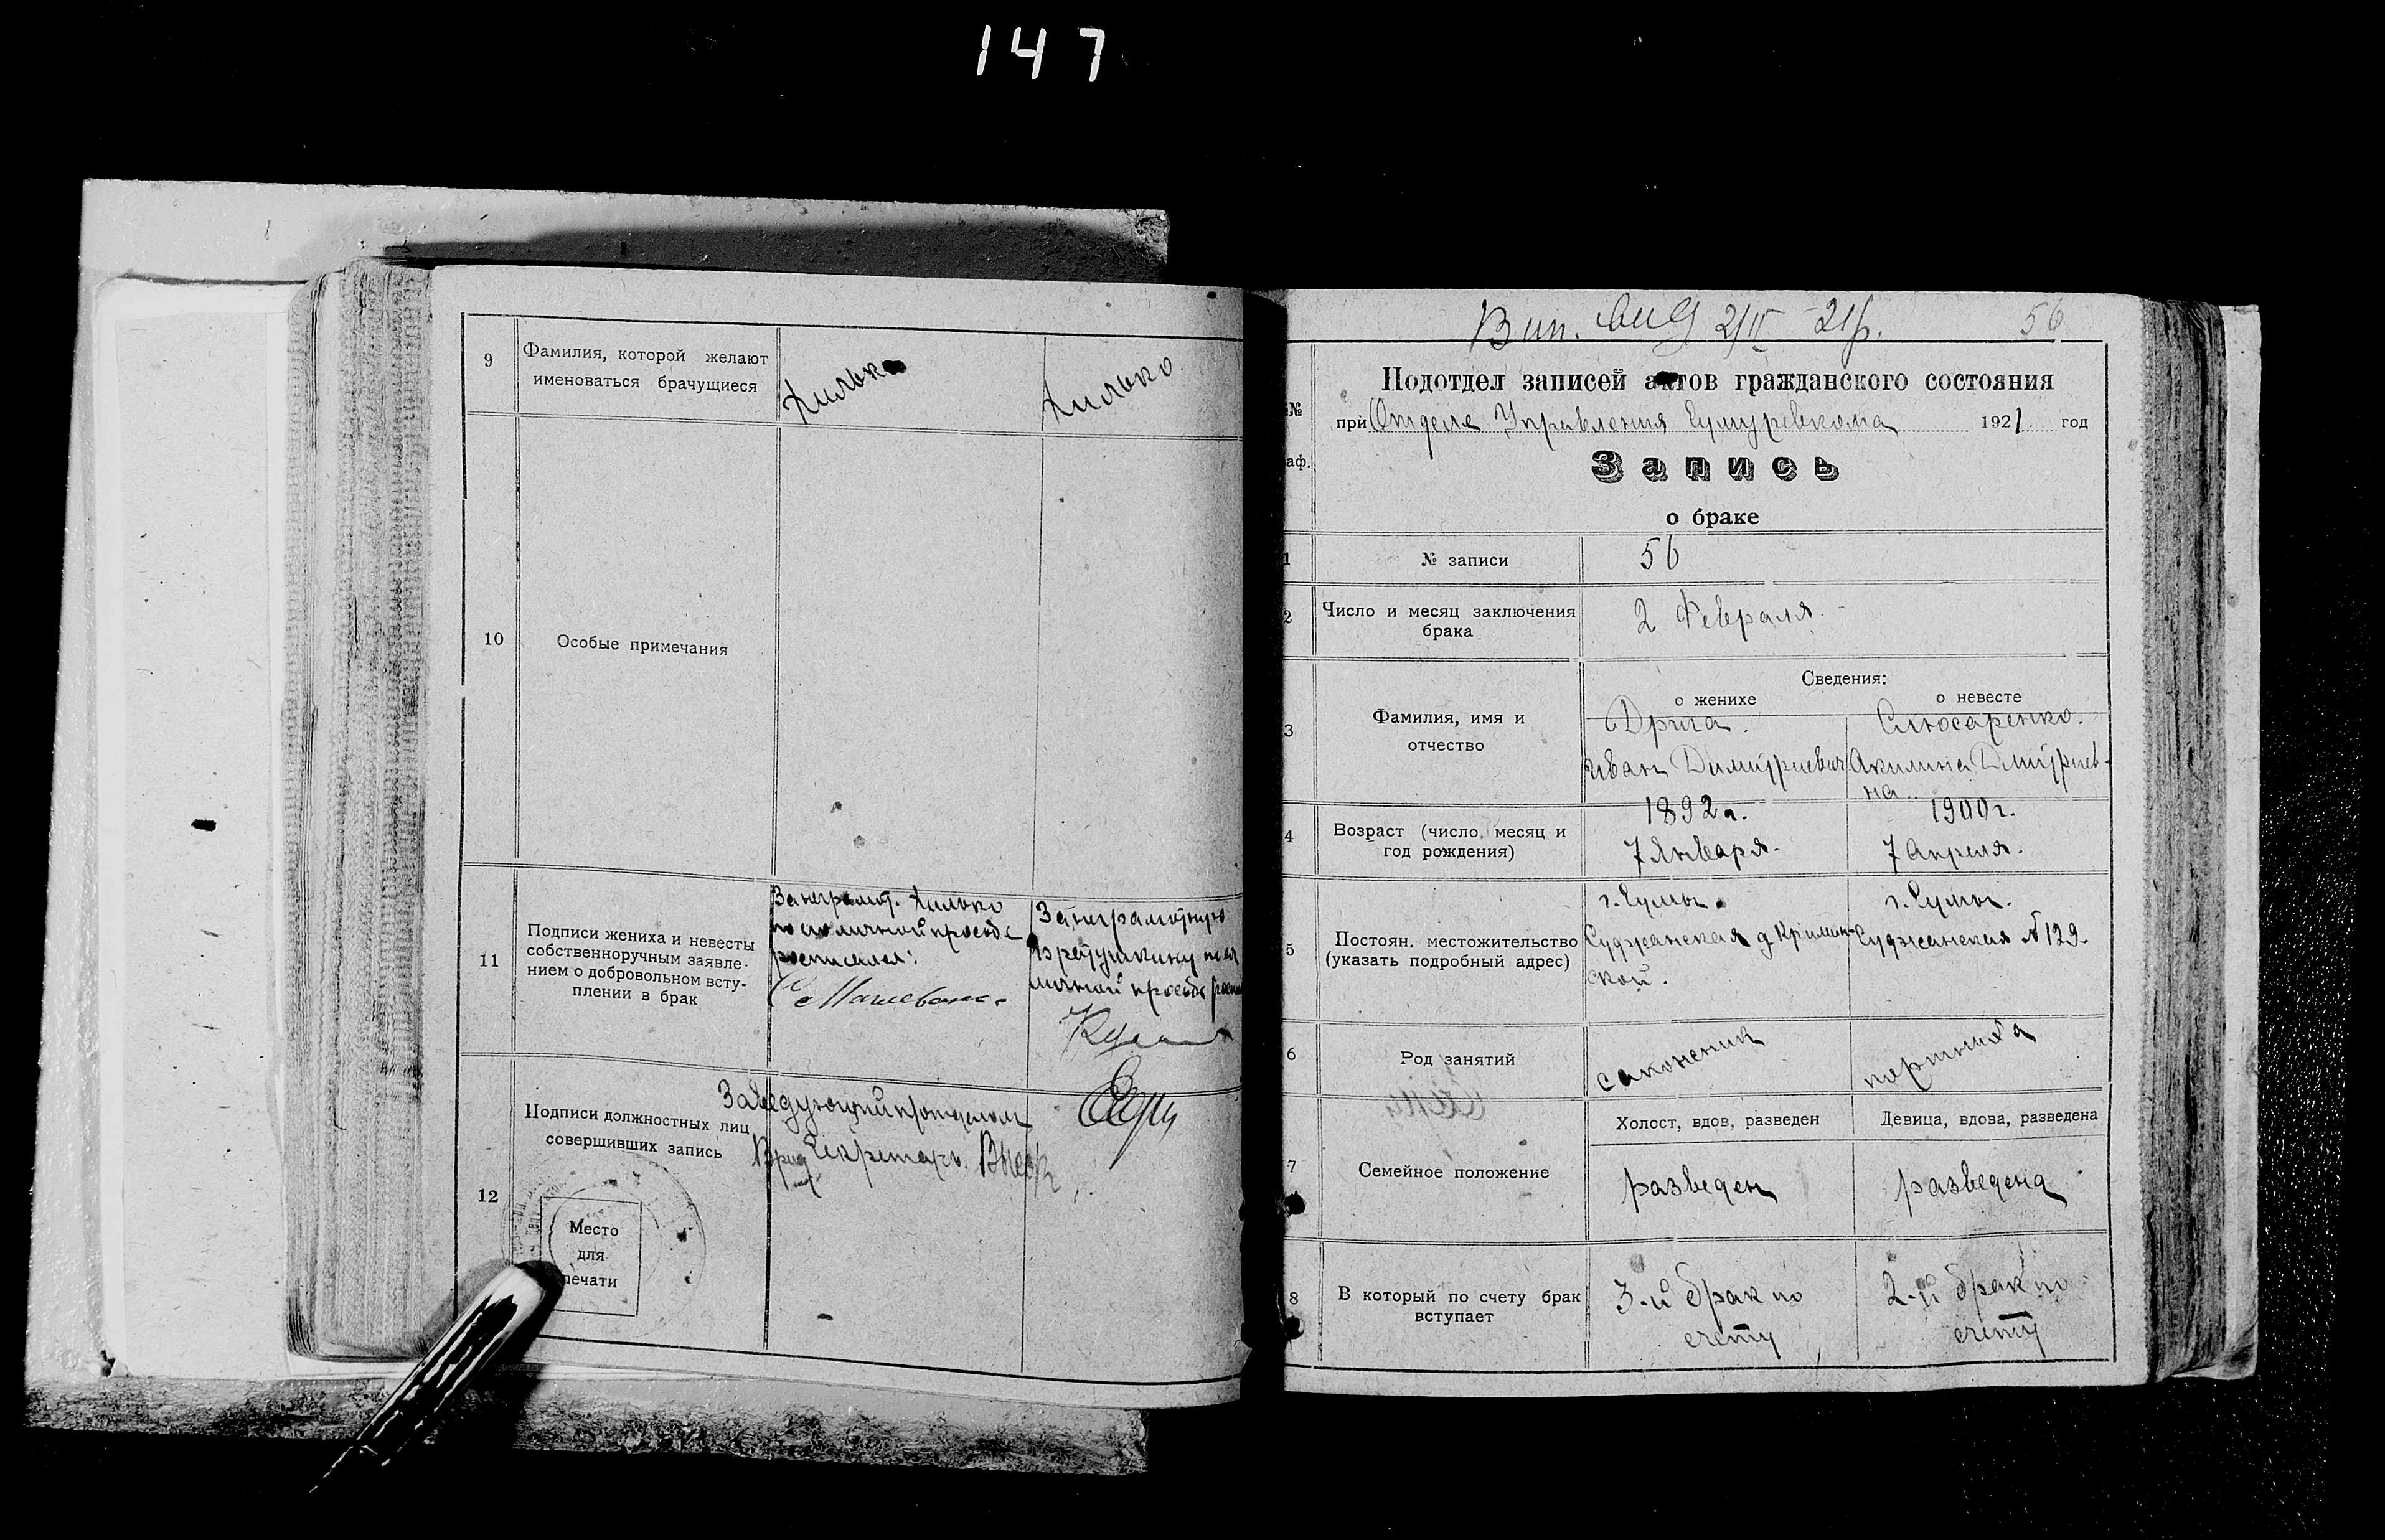 147
9
Фамилия, которой желают
именоваться брачущиеся
Хилько
Хилько
10
Особые примечания
11
Подписи жениха и невесты
собственноручным заявле-
нием о добровольном всту-
плении в брак
За неграмот. Хилько
по его личной просьбе
росписался:
За неграмотную
личной просьбе
12
Подписи должностных лиц
совершивших запись
Заведующий
Секретарь
Место
для
печати
Вып. 2/II 21р.
56
Подотдел записей актов гражданского состояния
№
при Отделе Управления Сумуревкома 1921 год
аф.
Запись
о браке
1
№ записи
56
2
Число и месяц заключения
брака
2 Февраля
Сведения:
о женихе
о невесте
3
Фамилия, имя и
отчество
Дрига.
Иван Димитриевич
Слюсаренко.
Акилина Дмитриев-
на
4
Возраст (число, месяц и
год рождения)
1892 г.
7 Января.
1900 г.
7 Апреля.
5
Постоян. местожительство
(указать подробный адрес)
г. Сумы
Суджанская д. Кримин-
ской.
г. Сумы.
Суджанская №129.
6
Род занятий
сапожник
портниха
7
Семейное положение
Холост, вдов, разведен
Девица, вдова, разведена
разведен
разведена
8
В который по счету брак
вступает
3-й брак по
счету
2-й брак по
счету